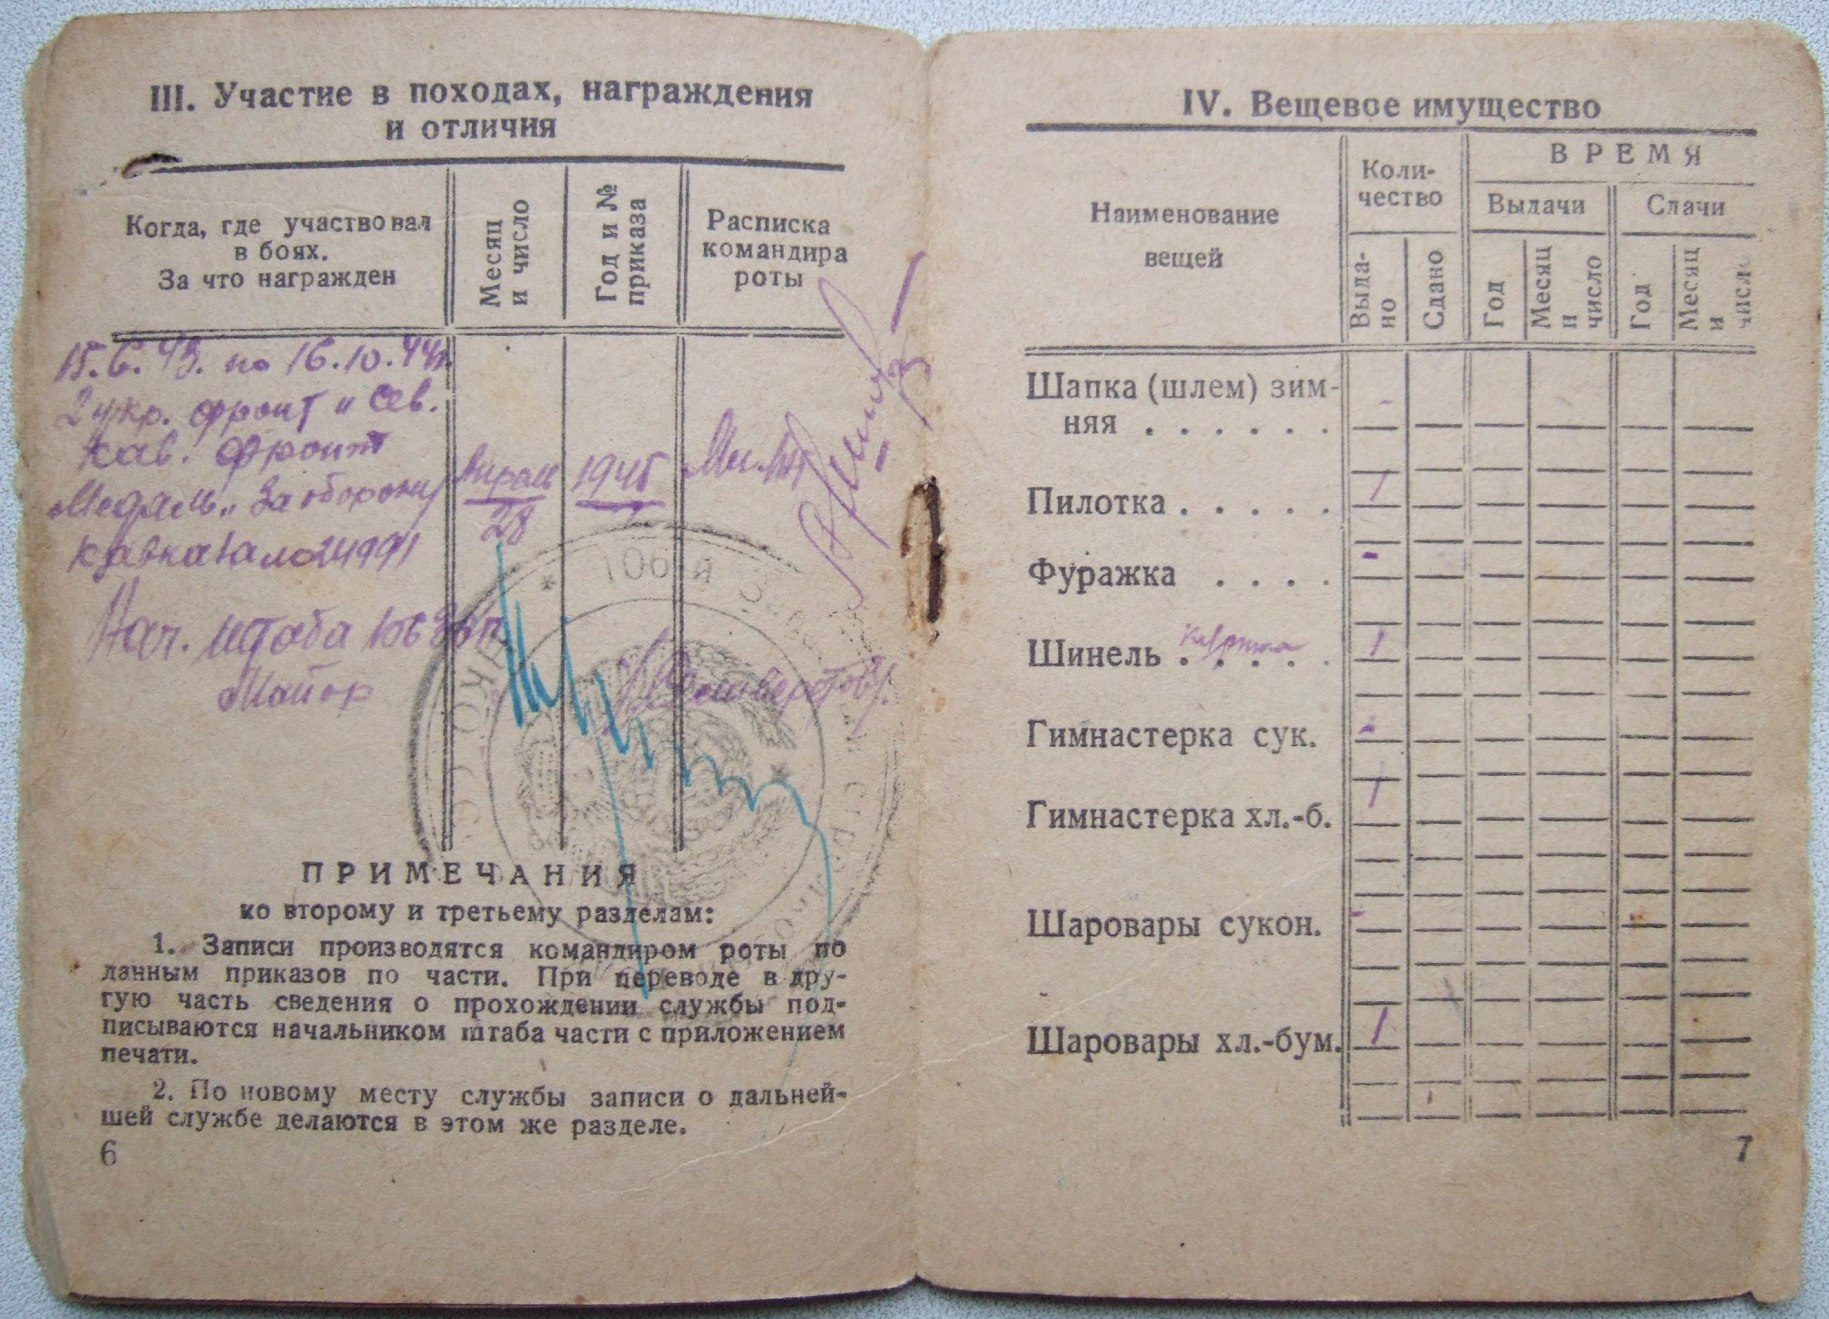 III. Участие в походах, награждения
и отличия
Когда, где участвовал
в боях.
За что награжден
Месяц
и число
Год и №
приказа
Расписка
командира
роты
15.6.43. по 16.10.44г.
2 укр. фронт и Сев.
Кав. фронт
Медаль „За оборону
Кавказа
Апрель
28
1945
Нач. штаба
Майор
ПРИМЕЧАНИЯ
ко второму и третьему разделам:
1. Записи производятся командиром роты по
данным приказов по части. При переводе в дру-
гую часть сведения о прохождении службы под-
писываются начальником штаба части с приложением
печати.
2. По новому месту службы записи о дальней-
шей службе делаются в этом же разделе.
6
IV. Вещевое имущество
Наименование
вещей
Коли-
чество
ВРЕМЯ
Выдачи
Сдачи
Выда-
но
Сдано
Год
Месяц
и
число
Год
Месяц
и
число
Шапка (шлем) зим-
няя . . . . . . -
Пилотка . . . . . 1
Фуражка . . . . -
Шинель . . . . . 1
Гимнастерка сук. -
Гимнастерка хл.-б. 1
Шаровары сукон. -
Шаровары хл.-бум. 1
7